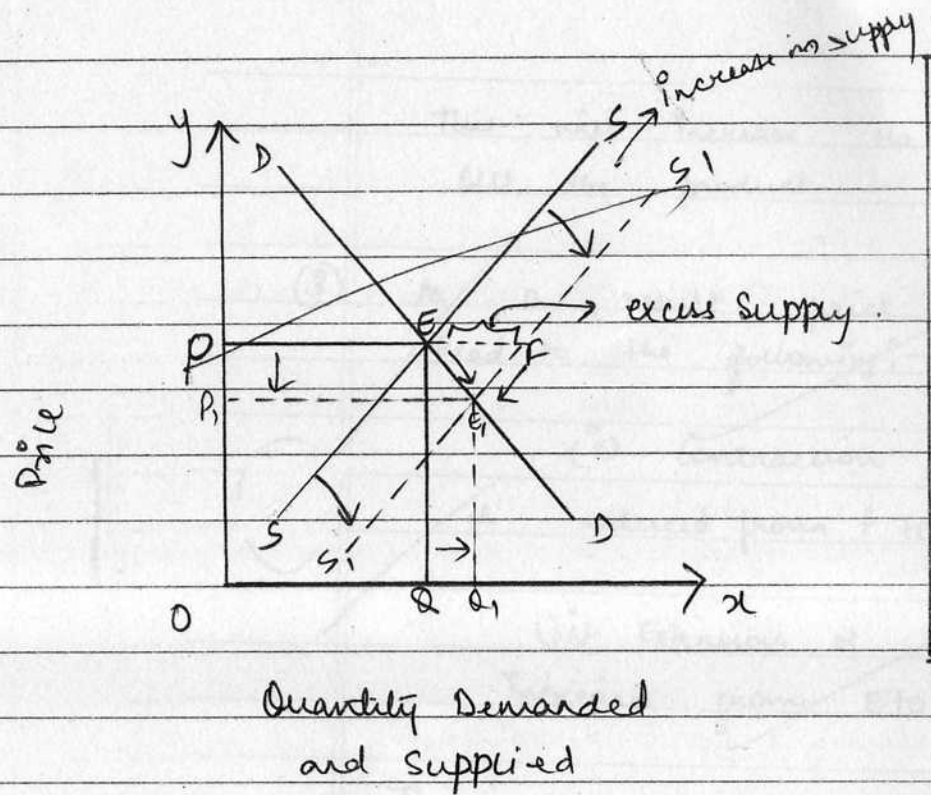 increase in supply
y
D
S
S1
E
excess supply
P
F
P1
E1
Price
S
S1
D
O
Q
Q1
x
Quantity Demanded
and supplied